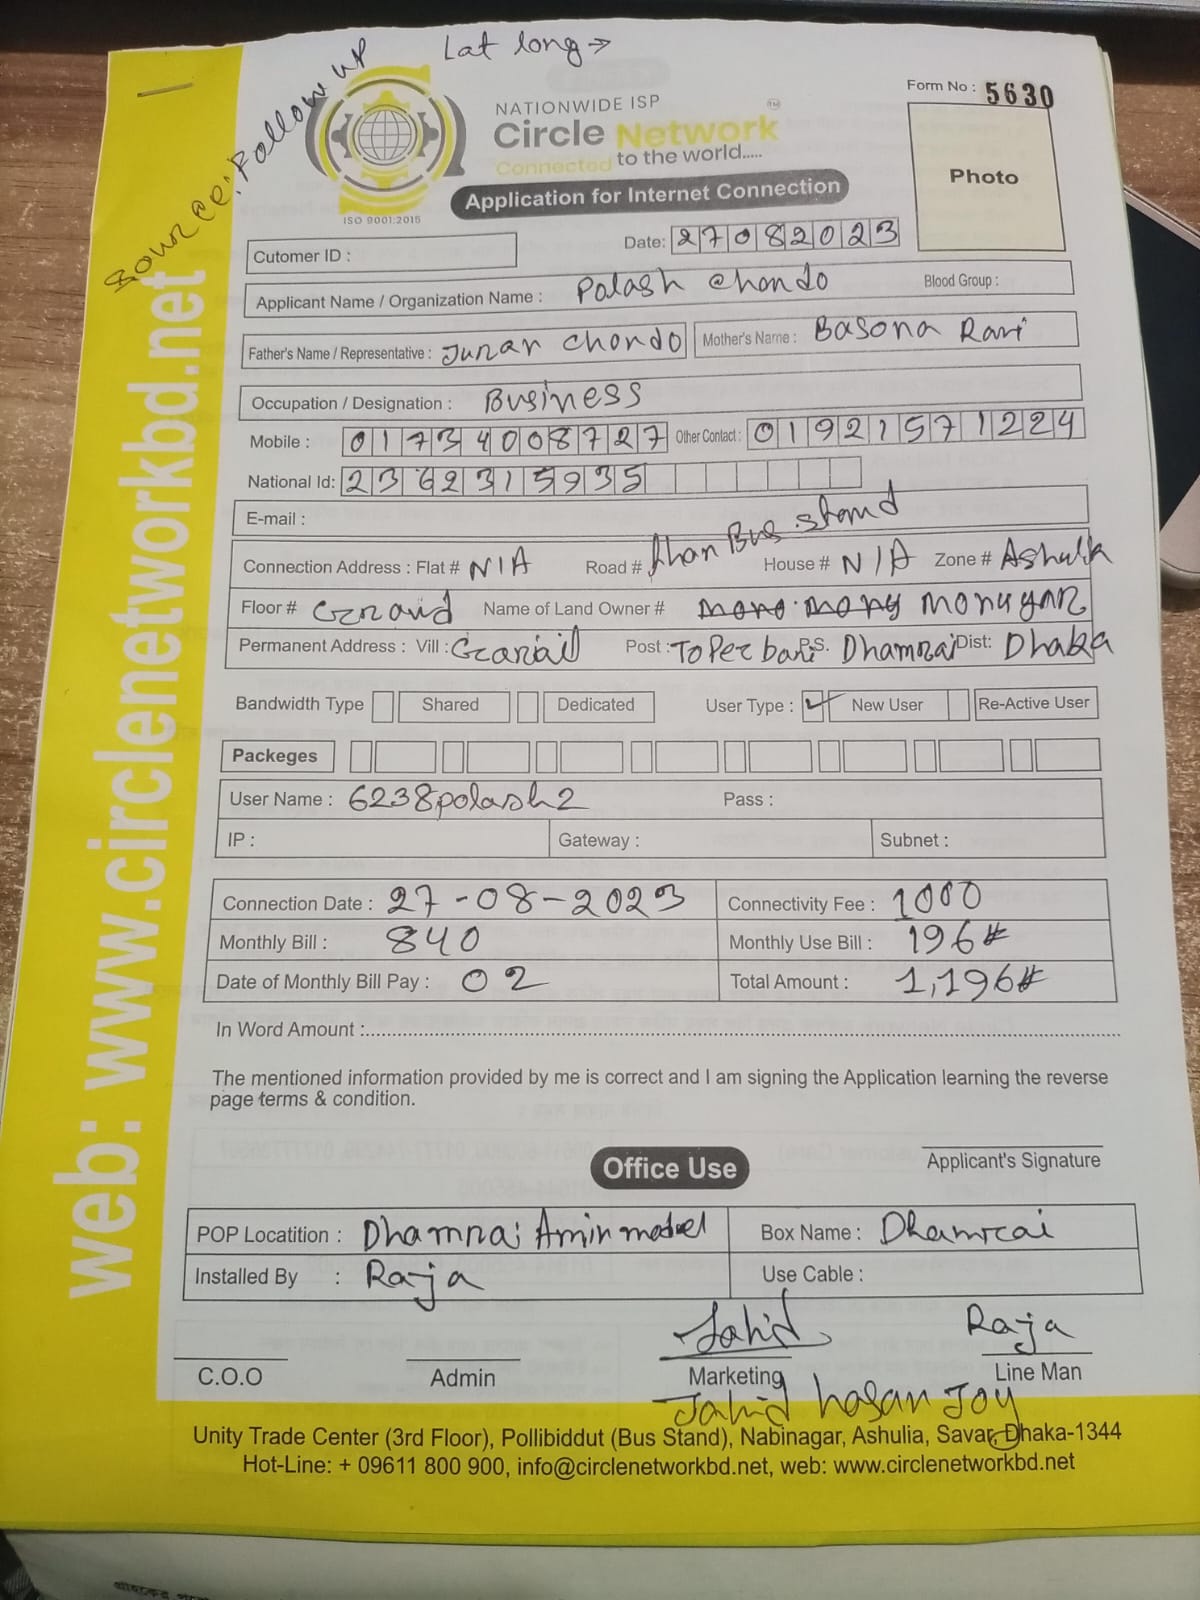 Lat long →
Source: Follow up
Form No : 5630
NATIONWIDE ISP
Circle Network
TM
Connected to the world.....
ISO 9001:2015
Application for Internet Connection
Photo
Cutomer ID :
Date: 27082023
Applicant Name / Organization Name : Palash Chondo Blood Group :
Father's Name / Representative : Junan Chondo Mother's Name : Basona Rani
Occupation / Designation : Business
Mobile : 01734008727 Other Contact : 01921571224
National Id: 2362315935
E-mail :
Connection Address : Flat # N/A Road # Bus stand House # N/A Zone # Ashulia
Floor # Name of Land Owner #
Permanent Address : Vill : Garail Post : ToPerbari P.S. Dhamrai Dist: Dhaka
Bandwidth Type Shared Dedicated User Type : New User Re-Active User
Packeges
User Name : 6238polash2 Pass :
IP : Gateway : Subnet :
Connection Date : 27-08-2023 Connectivity Fee : 1000
Monthly Bill : 840 Monthly Use Bill : 196
Date of Monthly Bill Pay : 02 Total Amount : 1,196
In Word Amount :
The mentioned information provided by me is correct and I am signing the Application learning the reverse
page terms & condition.
Office Use
Applicant's Signature
POP Locatition : Dhamrai Amin model Box Name : Dhamrai
Installed By : Raja Use Cable :
Jahid Raja
C.O.O Admin Marketing Line Man
Jahid hasan Joy
Unity Trade Center (3rd Floor), Pollibiddut (Bus Stand), Nabinagar, Ashulia, Savar, Dhaka-1344
Hot-Line: + 09611 800 900, info@circlenetworkbd.net, web: www.circlenetworkbd.net
web: www.circlenetworkbd.net